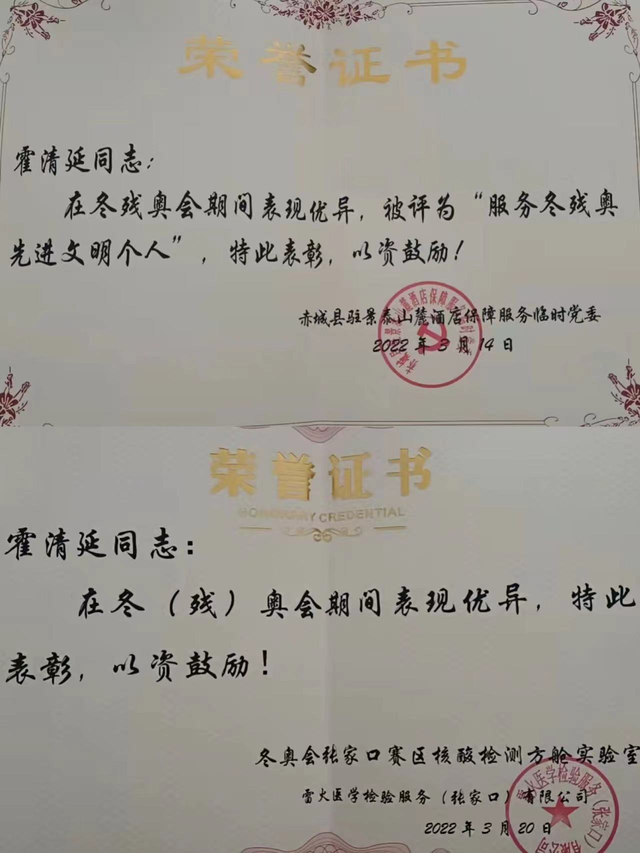 荣誉证书
霍清延同志：
在冬残奥会期间表现优异，被评为“服务冬残奥
先进文明个人”，特此表彰，以资鼓励！
赤城县驻景泰山麓酒店保障服务临时党委
2022 年 3 月 14 日
荣誉证书
HONORARY CREDENTIAL
霍清延同志：
在冬（残）奥会期间表现优异，特此
表彰，以资鼓励！
冬奥会张家口赛区核酸检测方舱实验室
雷火医学检验服务（张家口）有限公司
2022 年 3 月 20 日